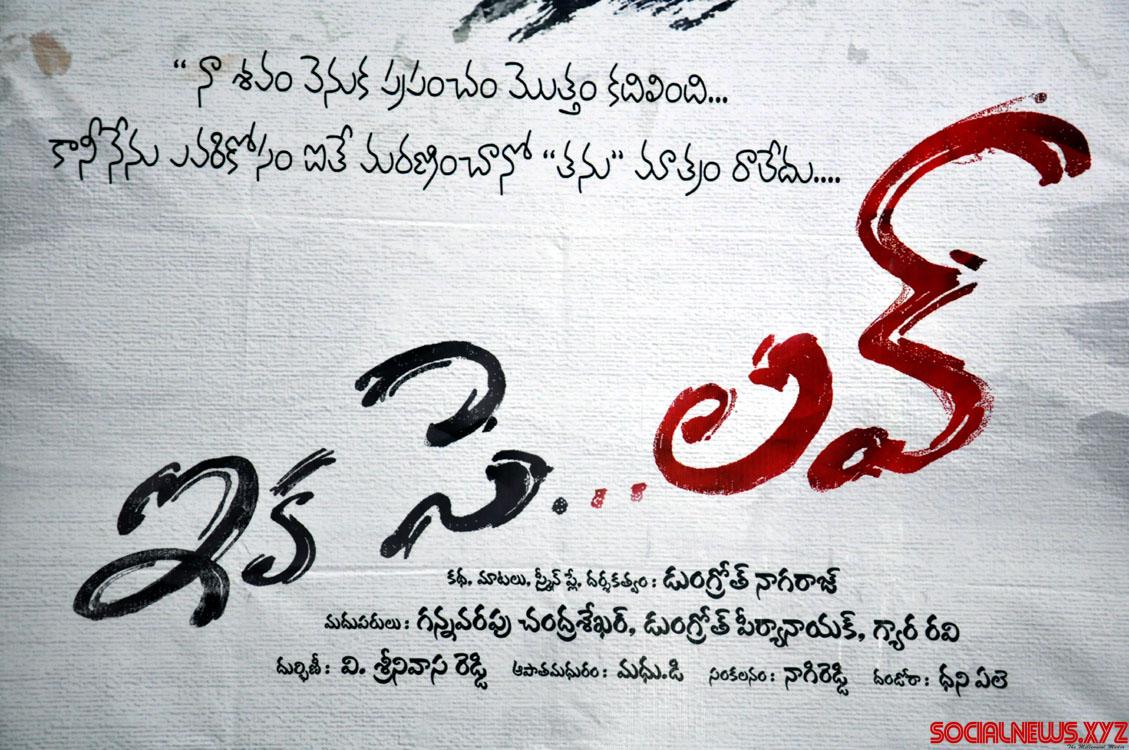 “ నా శవం వెనుక ప్రపంచం మొత్తం కదిలింది...
కానీ నేను ఎవరికోసం ఐతే మరణించానో “తను” మాత్రం రాలేదు....
ఇక సె...లవ్
కథ, మాటలు, స్క్రీన్ ప్లే, దర్శకత్వం : డుంగ్రోత్ నాగరాజ్
మదుపరులు : గన్నవరపు చంద్రశేఖర్, డుంగ్రోత్ పీర్యానాయక్, గ్యార రవి
దుర్భిణీ : వి. శ్రీనివాస రెడ్డి ఆపాతమధురం : మధు.డి సంకలనం : నాగిరెడ్డి దండోరా : ధని ఏలె
SOCIALNEWS.XYZ
The Millennial Media